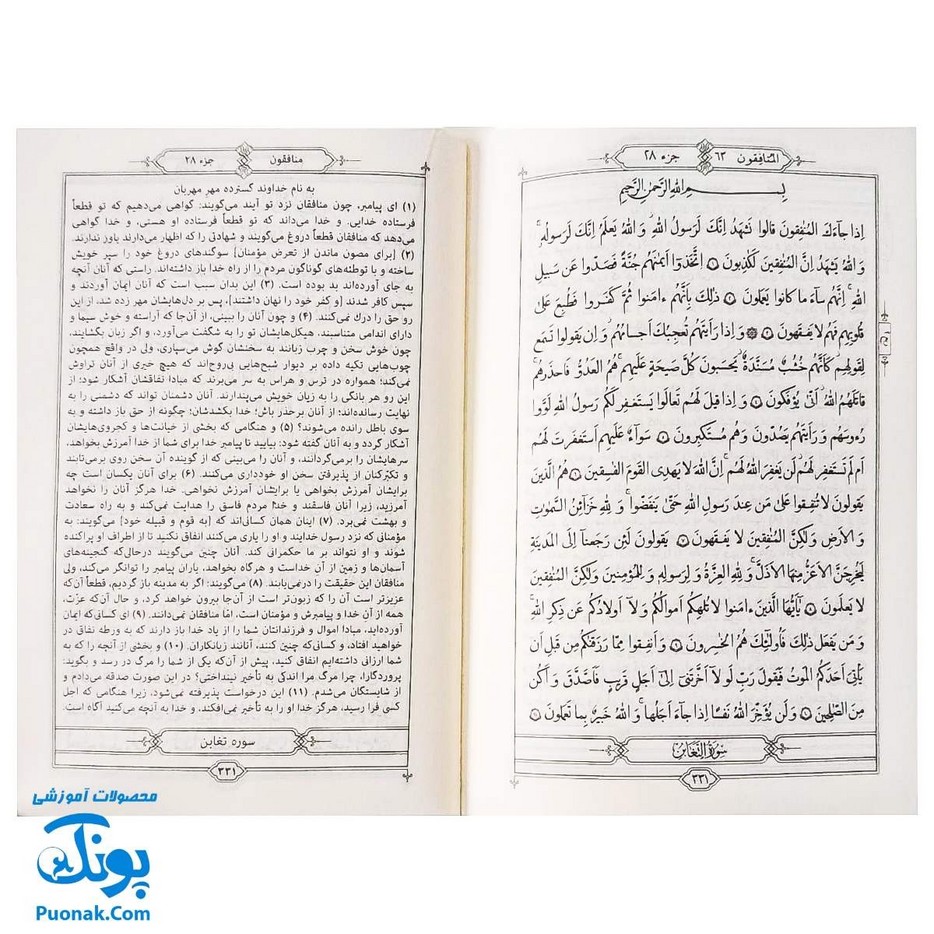 المُنَافِقُون ٦٣
جزء ٢٨
بِسْمِ اللهِ الرَّحْمٰنِ الرَّحِيمِ
اِذا جاءَكَ المُنٰفِقونَ قالوا نَشهَدُ اِنَّكَ لَرَسولُ اللهِ وَ اللهُ يَعلَمُ اِنَّكَ لَرَسولُهٗ
وَ اللهُ يَشهَدُ اِنَّ المُنٰفِقينَ لَكٰذِبونَ ١ اِتَّخَذوا اَيمٰنَهُم جُنَّةً فَصَدّوا عَن سَبيلِ
اللهِ اِنَّهُم ساءَ ما كانوا يَعمَلونَ ٢ ذٰلِكَ بِاَنَّهُم ءامَنوا ثُمَّ كَفَروا فَطُبِعَ عَلىٰ
قُلوبِهِم فَهُم لا يَفقَهونَ ٣ وَ اِذا رَاَيتَهُم تُعجِبُكَ اَجسامُهُم وَ اِن يَقولوا تَسمَع
لِقَولِهِم كَاَنَّهُم خُشُبٌ مُسَنَّدَةٌ يَحسَبونَ كُلَّ صَيحَةٍ عَلَيهِم هُمُ العَدُوُّ فَاحذَرهُم
قاتَلَهُمُ اللهُ اَنّىٰ يُؤفَكونَ ٤ وَ اِذا قيلَ لَهُم تَعالَوا يَستَغفِر لَكُم رَسولُ اللهِ لَوَّوا
رُءوسَهُم وَ رَاَيتَهُم يَصُدّونَ وَ هُم مُستَكبِرونَ ٥ سَواءٌ عَلَيهِم اَستَغفَرتَ لَهُم
اَم لَم تَستَغفِر لَهُم لَن يَغفِرَ اللهُ لَهُم اِنَّ اللهَ لا يَهدِى القَومَ الفٰسِقينَ ٦ هُمُ الَّذينَ
يَقولونَ لا تُنفِقوا عَلىٰ مَن عِندَ رَسولِ اللهِ حَتّىٰ يَنفَضّوا وَ لِلّٰهِ خَزائِنُ السَّمٰوٰتِ
وَ الاَرضِ وَ لٰكِنَّ المُنٰفِقينَ لا يَفقَهونَ ٧ يَقولونَ لَئِن رَجَعنا اِلَى المَدينَةِ
لَيُخرِجَنَّ الاَعَزُّ مِنهَا الاَذَلَّ وَ لِلّٰهِ العِزَّةُ وَ لِرَسولِهٖ وَ لِلمُؤمِنينَ وَ لٰكِنَّ المُنٰفِقينَ
لا يَعلَمونَ ٨ يٰاَيُّهَا الَّذينَ ءامَنوا لا تُلهِكُم اَموالُكُم وَ لا اَولادُكُم عَن ذِكرِ اللهِ
وَ مَن يَفعَل ذٰلِكَ فَاُولٰئِكَ هُمُ الخٰسِرونَ ٩ وَ اَنفِقوا مِمّا رَزَقنٰكُم مِن قَبلِ اَن
يَأتِىَ اَحَدَكُمُ المَوتُ فَيَقولَ رَبِّ لَولا اَخَّرتَنى اِلىٰ اَجَلٍ قَريبٍ فَاَصَّدَّقَ وَ اَكُن
مِنَ الصّٰلِحينَ ١٠ وَ لَن يُؤَخِّرَ اللهُ نَفسًا اِذا جاءَ اَجَلُها وَ اللهُ خَبيرٌ بِما تَعمَلونَ ١١
سُورَةُ التَّغابُن
٣٣١
منافقون
جزء ۲۸
به نام خداوند گسترده مهرِ مهربان
(۱) ای پیامبر، چون منافقان نزد تو آیند می‌گویند: گواهی می‌دهیم که تو قطعاً
فرستاده خدایی. و خدا می‌داند که تو قطعاً فرستاده او هستی، و خدا گواهی
می‌دهد که منافقان قطعاً دروغ می‌گویند و شهادتی را که اظهار می‌دارند باور ندارند.
(۲) [برای مصون ماندن از تعرض مؤمنان] سوگندهای دروغ خود را سپر خویش
ساخته و با توطئه‌های گوناگون مردم را از راه خدا باز داشته‌اند. راستی که آنان آنچه
به جای آورده‌اند بد بوده است. (۳) این بدان سبب است که آنان ایمان آوردند و
سپس کافر شدند [و کفر خود را نهان داشتند]، پس بر دل‌هایشان مهر زده شد، از این
رو حق را درک نمی‌کنند. (۴) و چون آنان را ببینی، از آن‌جا که آراسته و خوش سیما و
دارای اندامی متناسبند، هیکل‌هایشان تو را به شگفت می‌آورد، و اگر زبان بگشایند،
چون خوش سخن و چرب زبانند به سخنشان گوش می‌سپاری، ولی در واقع همچون
چوب‌هایی تکیه داده بر دیوار شبح‌هایی بی‌روح‌اند که هیچ خیری از آنان تراوش
نمی‌کند؛ همواره در ترس و هراس به سر می‌برند که مبادا نفاقشان آشکار شود؛ از
این رو هر بانگی را به زیان خویش می‌پندارند. آنان دشمنان تواند که دشمنی را به
نهایت رسانده‌اند؛ از آنان برحذر باش؛ خدا بکشدشان؛ چگونه از حق باز داشته و به
سوی باطل رانده می‌شوند؟ (۵) و هنگامی که بخشی از خیانت‌ها و کجروی‌هایشان
آشکار گردد و به آنان گفته شود: بیایید تا پیامبر خدا برای شما از خدا آمرزش بخواهد،
سرهایشان را برمی‌گردانند، و آنان را می‌بینی که از گوینده آن سخن روی برمی‌تابند
و تکبّرکنان از پذیرفتن سخن او خودداری می‌کنند. (۶) برای آنان یکسان است چه
برایشان آمرزش بخواهی یا برایشان آمرزش نخواهی. خدا هرگز آنان را نخواهد
آمرزید، زیرا آنان فاسقند و خدا مردم فاسق را هدایت نمی‌کند و به راه سعادت
و بهشت نمی‌برد. (۷) اینان همان کسانی‌اند که [به قوم و قبیله خود] می‌گویند: به
مؤمنانی که نزد رسول خدایند و او را یاری می‌کنند انفاق نکنید تا از اطراف او پراکنده
شوند و او نتواند بر ما حکمرانی کند. آنان چنین می‌گویند درحالی‌که گنجینه‌های
آسمان‌ها و زمین از آن خداست و هرگاه بخواهد، یاران پیامبر را توانگر می‌کند، ولی
منافقان این حقیقت را درنمی‌یابند. (۸) می‌گویند: اگر به مدینه باز گردیم، قطعاً آن‌که
عزیزتر است آن را که زبون‌تر است از آن‌جا بیرون خواهد کرد، و حال آن‌که عزّت،
همه از آن خدا و پیامبرش و مؤمنان است، امّا منافقان نمی‌دانند. (۹) ای کسانی‌که ایمان
آورده‌اید، مبادا اموال و فرزندانتان شما را از یاد خدا باز دارند که به ورطه نفاق در
خواهید افتاد، و کسانی‌که چنین کنند، آنانند زیانکاران. (۱۰) و بخشی از آنچه را که به
شما ارزانی داشته‌ایم انفاق کنید، پیش از آن‌که یکی از شما را مرگ در رسد و بگوید:
پروردگارا، چرا مرگ مرا اندکی به تأخیر نینداختی؟ در این صورت صدقه می‌دادم و
از شایستگان می‌شدم. (۱۱) این درخواست پذیرفته نمی‌شود، زیرا هنگامی که اجل
کسی فرا رسید، هرگز خدا او را به تأخیر نمی‌افکند، و خدا به آنچه می‌کنید آگاه است.
سوره تغابن
۳۳۱
محصولات آموزشی
پونک
Puonak.Com